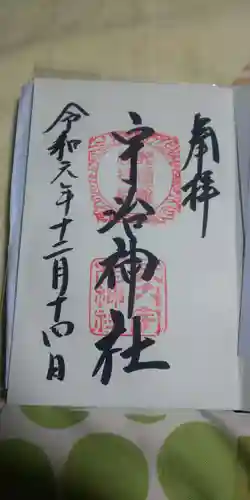 奉拝
宇治神社
令和元年十二月十四日